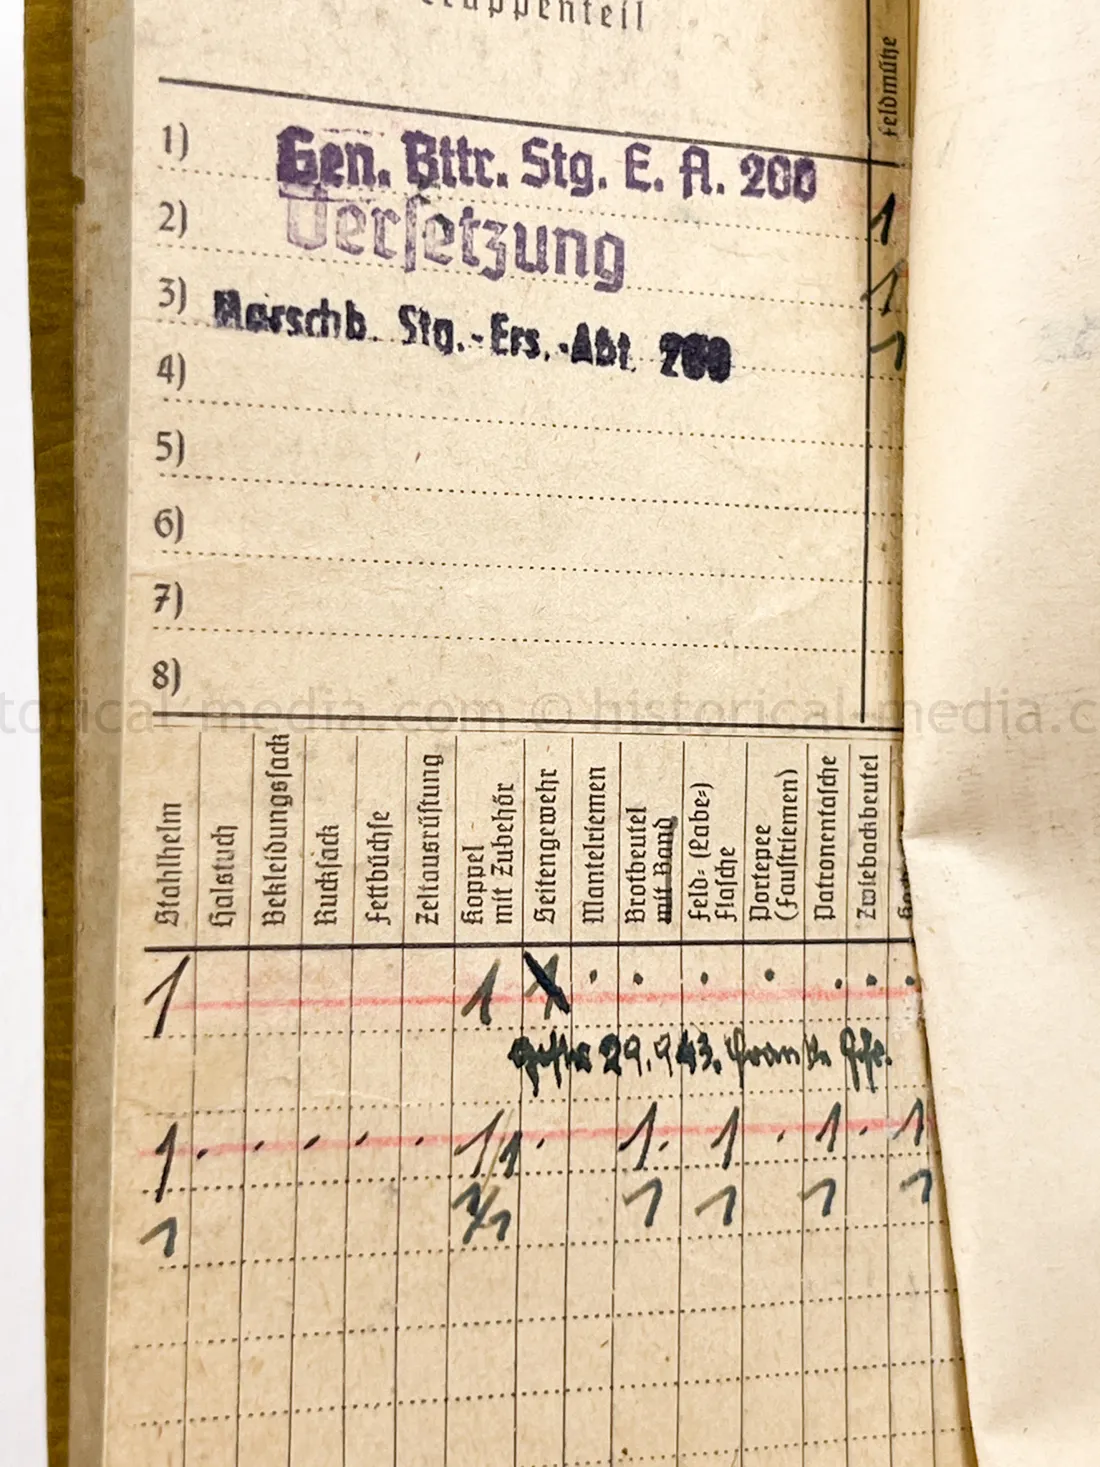 Truppenteil
Feldmütze
1) Gen. Bttr. Stg. E. A. 200
2) Versetzung
3) Marschb. Stg.-Ers.-Abt. 200
4)
5)
6)
7)
8)
1
1
1
torical-media.com © historical-media.c
Stahlhelm
Halstuch
Bekleidungssack
Rucksack
Fettbüchse
Zeltausrüstung
Koppel
mit Zubehör
Seitengewehr
Mantelriemen
Brotbeutel
mit Band
Feld- (Labe-)
Flasche
Portepee
(Faustriemen)
Patronentasche
Zwiebackbeutel
1 1 1 . . . . . . .
29.9.43.
1 . . . . . 1/1 . 1 . 1 . 1 . 1
1 1/1 1 1 1 1